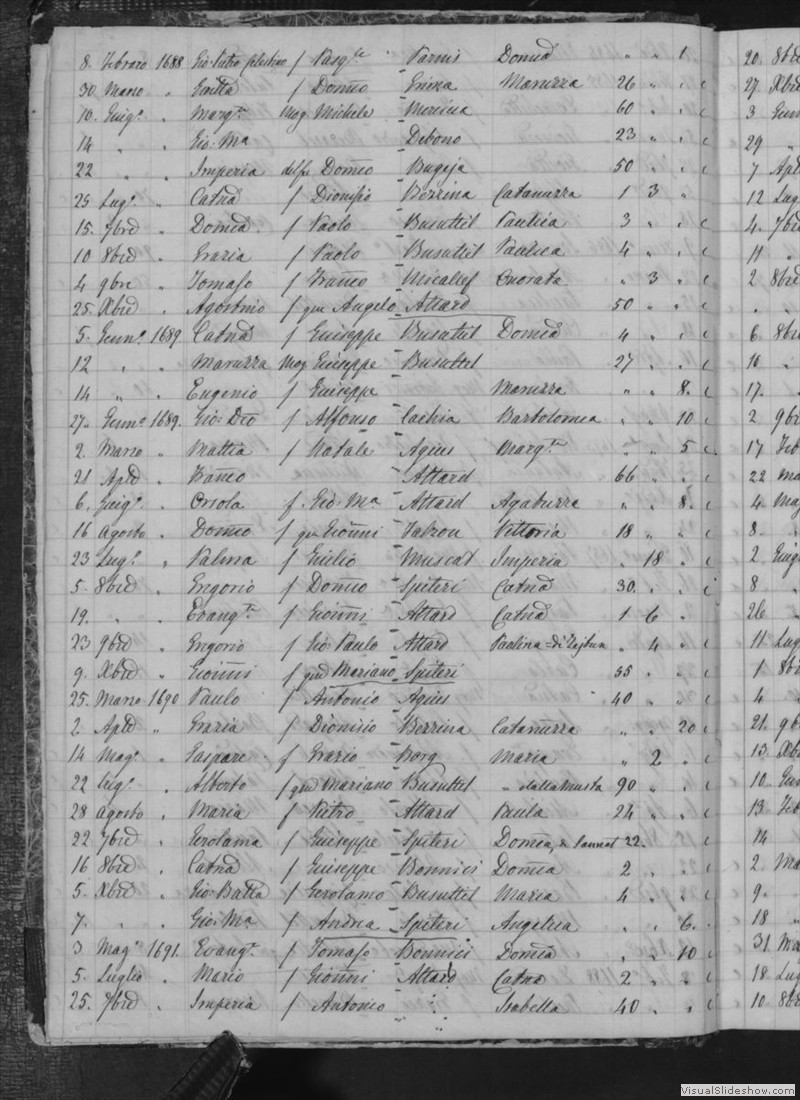 8. Febraro 1688 Gio: Pietro f Pasq.le Parnis Domca " " 1.
30. Marzo " f Domco Grixa Maruzza 26 " " c
10. Giug.o " Marg.ta Mag. Michele 60 " " c
14 " " Gio: Ma Debono 23 " " c
22 " " Imperia Domco Bugeja 50 " " c
25 Lug.o " Catna f Dionisio Bezzina Catanuzza 1 3 "
15. 7bre " Domca f Paolo Busuttil Paulica 3 " " c
10 8bre " Grazia f Paolo Busuttil Paulica 4 " " c
4 9bre " Tomaso f Franco Micallef Onorata " 3 " c
25. Xbre " Agostino f qm Angelo Attard 50 " " c
5. Genn.o 1689. Catna f Giuseppe Busuttil Domca 4 " " c
12 " " Maruzza Mag. Giuseppe Busuttil 27 " " c
14 " " Eugenio f Giuseppe Maruzza " " 8. c
27. Genn.o 1689. Gio: Dro f Alfonso Cachia Bartolomea " " 10 c
2. Marzo " Mattia f Natale Agius Marg.ta " " 5 c
21 Aple " Franco Attard 66 " " c
6. Giug.o " Orsola f Gio: Ma Attard Agatuzza " " 8. c
16 Agosto " Domco f qm Gionni Valzon Vittoria 18 " " c
23 Lug.o " Palma f Giulio Muscat Imperia " 18 " c
5. 8bre " Gregorio f Domco Spiteri Catna 30. " " c
19. " " Evang.ta f Gionni Attard Catna 1 6 " c
23 9bre " Gregorio f Gio: Paulo Attard Paolina di Zejtun " 4 " c
9. Xbre " Gionni f qm Mariano Spiteri 55 " " c
25. Marzo 1690 Paulo f Antonio Agius " 40 " " c
2. Aple " Grazia f Dionisio Bezzina Catanuzza " " 20 c
14 Mag.o " Gaspare f Grazio Borg Maria " 2 " c
22 Lug.o " Alberto f qm Mariano Busuttil " dalla Musta 90 " " c
28 Agosto " Maria f Pietro Attard Paula 24 " " c
22 7bre " Gerolama f Giuseppe Spiteri Domca, 22. " " c
16 8bre " Catna f Giuseppe Bonnici Domca 2 " " c
5. Xbre " Gio: Batta f Gerolamo Busuttil Maria 4 " " c
7. " " Gio: Ma f Andrea Spiteri Angelica " " 6. c
3 Mag.o 1691. Evang.ta f Tomaso Bonnici Domca " " 10 c
5. Luglio " Mario f Gionni Attard Catna 2 " " c
25. 7bre " Imperia f Antonio " Isabella 40 " " c
20. 8bre
27 Xbre
3 Genn
29 "
7 Aple
12 Lug
4. 7bre
11 "
2 8bre
" "
6. 8bre
10 "
17. "
2 9bre
17 Feb
22 Ma
4. Mag
8. "
2 Giug
8 "
26 "
11 Lug
1 8bre
4 "
21. 9bre
13. Xbre
10. Gen
13 Feb
14 "
2 Ma
9. "
18 "
31 Ma
18 Lug
10 8bre
VisualSlideshow.com